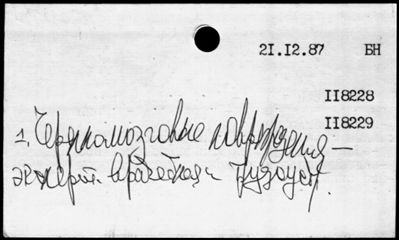 21.12.87 БН
II8228
II8229
1. Черепномозговые повреждения —
эксперт. врачебная и трудоуст.